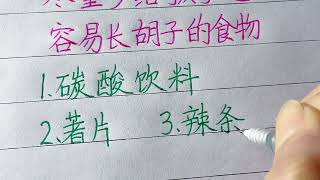 容易长胡子的食物
1.碳酸饮料
2.薯片 3.辣条